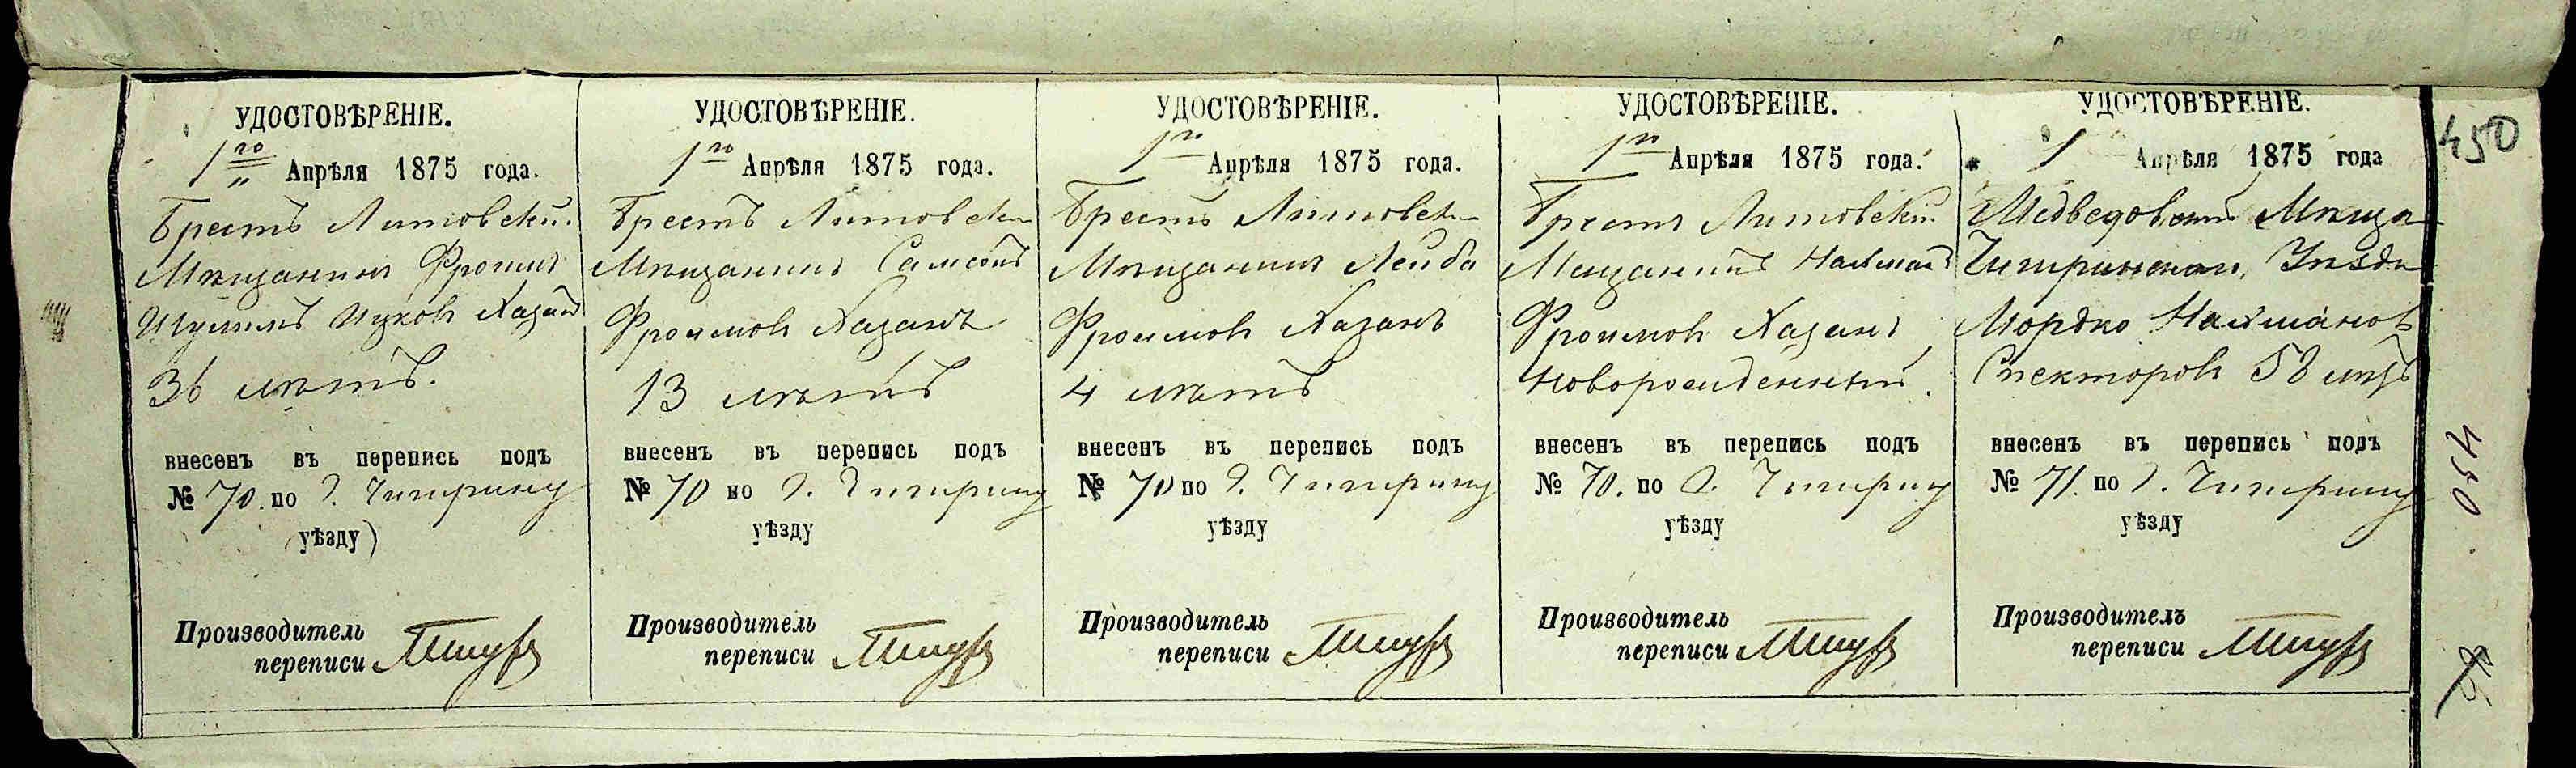 УДОСТОВѢРЕНІЕ.
1го Апрѣля 1875 года.
Брестъ Литовскій
Мѣщанинъ Фроимъ
Шулимъ Ицковъ Хазанъ
36 лѣтъ.
внесенъ въ перепись подъ
№ 70. по г. Чигирину
уѣзду)
Производитель
переписи
УДОСТОВѢРЕНІЕ.
1го Апрѣля 1875 года.
Брестъ Литовскій
Мѣщанинъ Самсонъ
Фроимовъ Хазанъ
13 лѣтъ
внесенъ въ перепись подъ
№ 70 по г. Чигирину
уѣзду
Производитель
переписи
УДОСТОВѢРЕНІЕ.
1го Апрѣля 1875 года.
Брестъ Литовск
Мѣщанинъ Лейба
Фроимовъ Хазанъ
4 лѣтъ
внесенъ въ перепись подъ
№ 70 по г. Чигирину
уѣзду
Производитель
переписи
УДОСТОВѢРЕНІЕ.
1го Апрѣля 1875 года.
Брестъ Литовскій
Мещанинъ Нахманъ
Фроимовъ Хазанъ
Новорожденный.
внесенъ въ перепись подъ
№ 70. по г. Чигирину
уѣзду
Производитель
переписи
УДОСТОВѢРЕНІЕ.
1 Апрѣля 1875 года
Медведовскій Мѣща
Чигиринскаго Уѣзда
Мордко Нахмановъ
Спекторовъ 58 лѣтъ
внесенъ въ перепись подъ
№ 71. по г. Чигирину
уѣзду
Производитель
переписи
450
450.